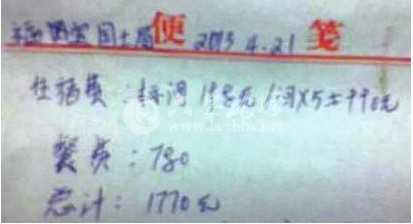 国土局便 2013.4.21 笺
住宿费：每间198元/间×5=990元
餐费：780
总计：1770元